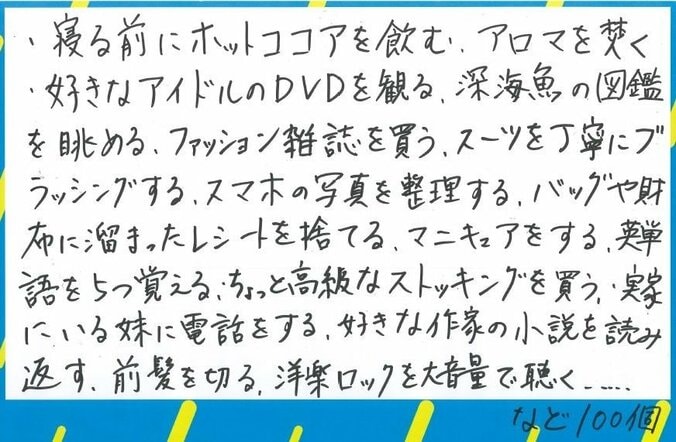 ・寝る前にホットココアを飲む、アロマを焚く
・好きなアイドルのDVDを観る、深海魚の図鑑
を眺める、ファッション雑誌を買う、スーツを丁寧にブ
ラッシングする、スマホの写真を整理する、バッグや財
布に溜まったレシートを捨てる、マニキュアをする、英単
語を5つ覚える、ちょっと高級なストッキングを買う、・実家
にいる妹に電話をする、好きな作家の小説を読み
返す、前髪を切る、洋楽ロックを大音量で聴く……
など100個